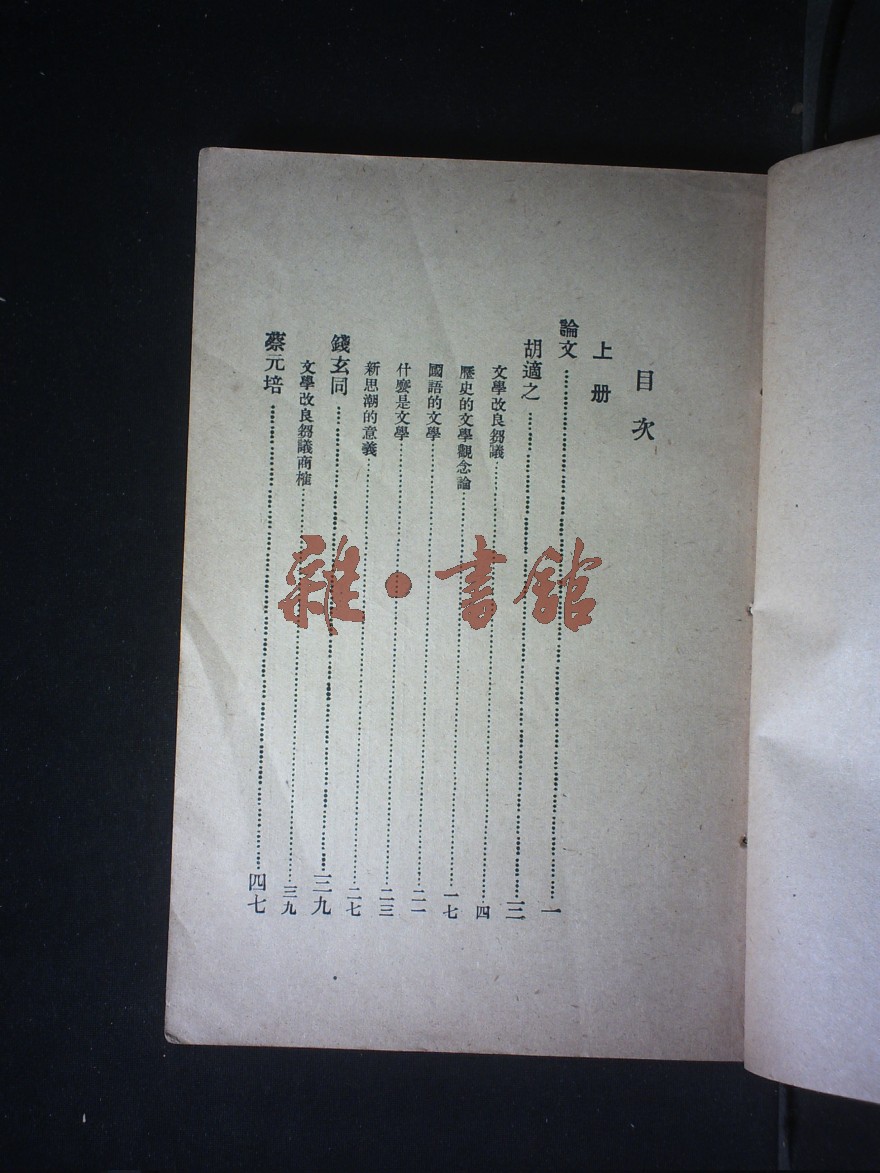 目次
上册
論文 一
胡適之 三
文學改良芻議 四
歷史的文學觀念論 一七
國語的文學 二一
什麼是文學 二三
新思潮的意義 二七
錢玄同 三九
文學改良芻議商榷 三九
蔡元培 四七
雜·書館